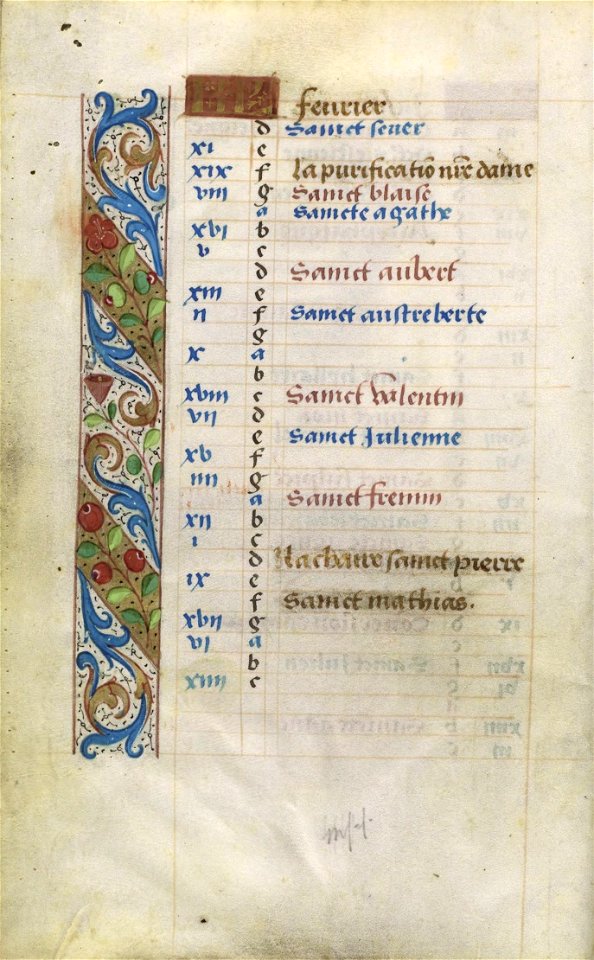 KL fevrier
d Sainct sever
xi e
xix f La purificatiō nr̄e dame
viii g Sainct blaise
a Saincte agathe
xvi b
v c
d Sainct aubert
xiii e
ii f Sainct austreberte
g
x a
b
xviii c Sainct valentin
vii d
e Sainct Julienne
xv f
iiii g
a Sainct fremin
xii b
i c
d La chaire sainct pierre
ix e
f Sainct mathias.
xvii g
vi a
b
xiiii c